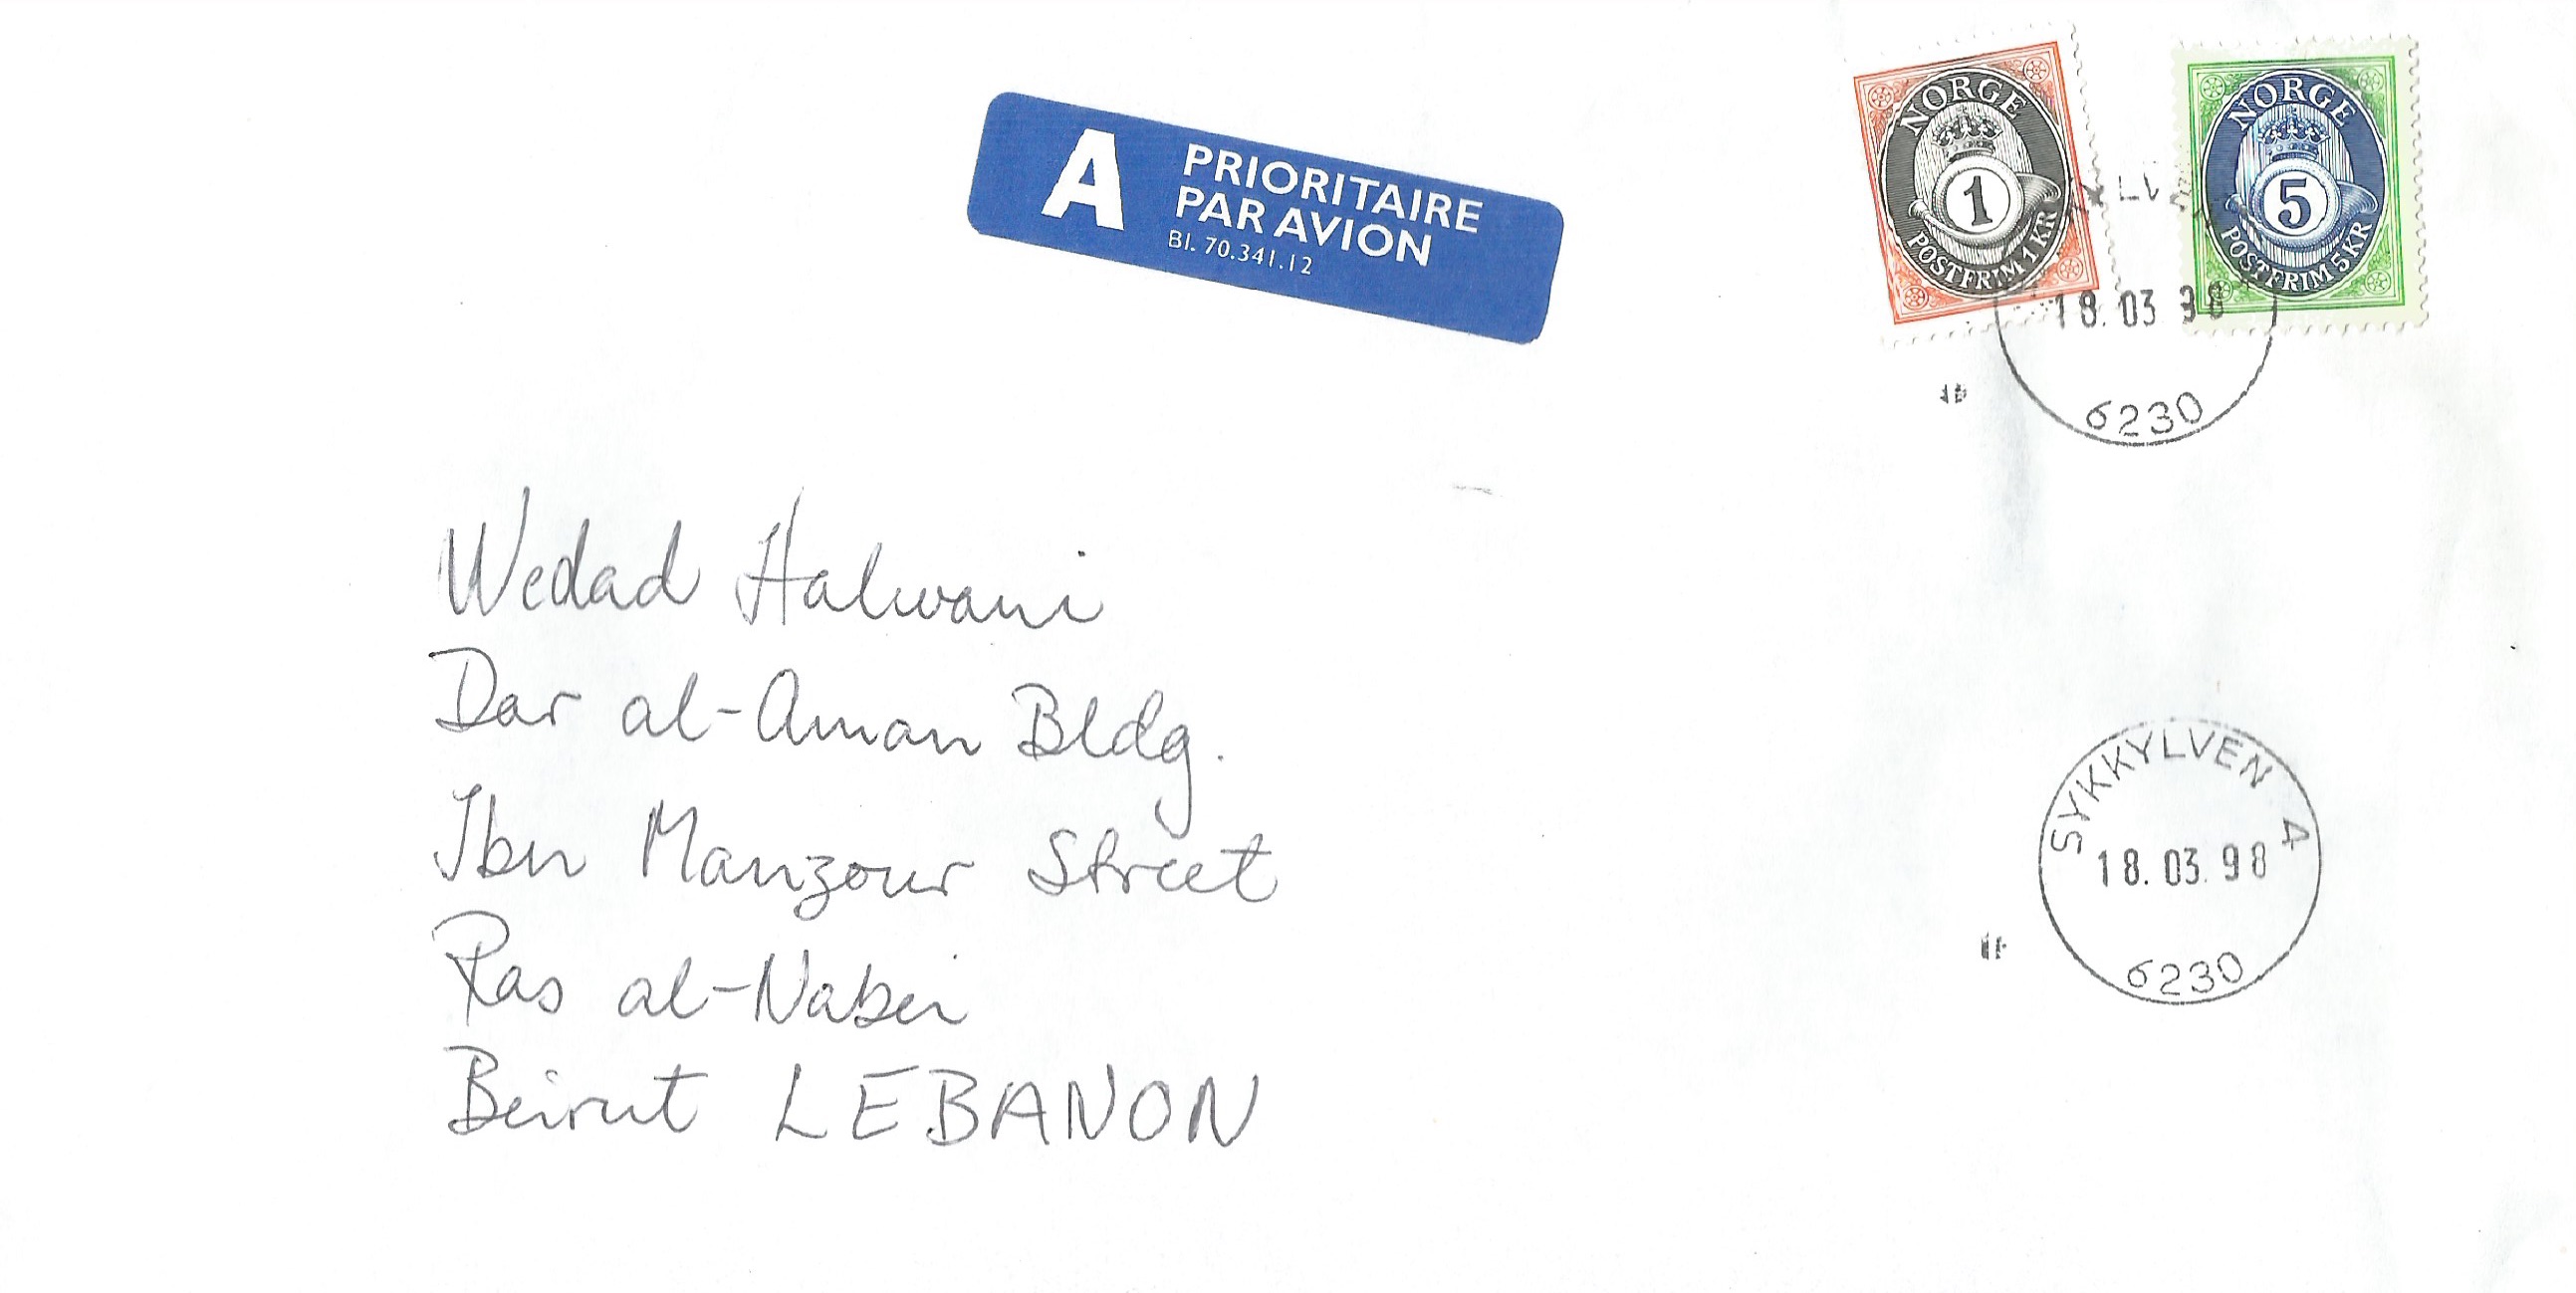 A PRIORITAIRE
PAR AVION
Bl. 70.341.12
NORGE
1
POSTFRIM 1 KR
NORGE
5
POSTFRIM 5 KR
18.03 98
6230
Wedad Halwani
Dar al-Aman Bldg.
Ibn Manzour Street
Ras al-Nabei
Beirut LEBANON
SYKKYLVEN 4
18.03.98
6230